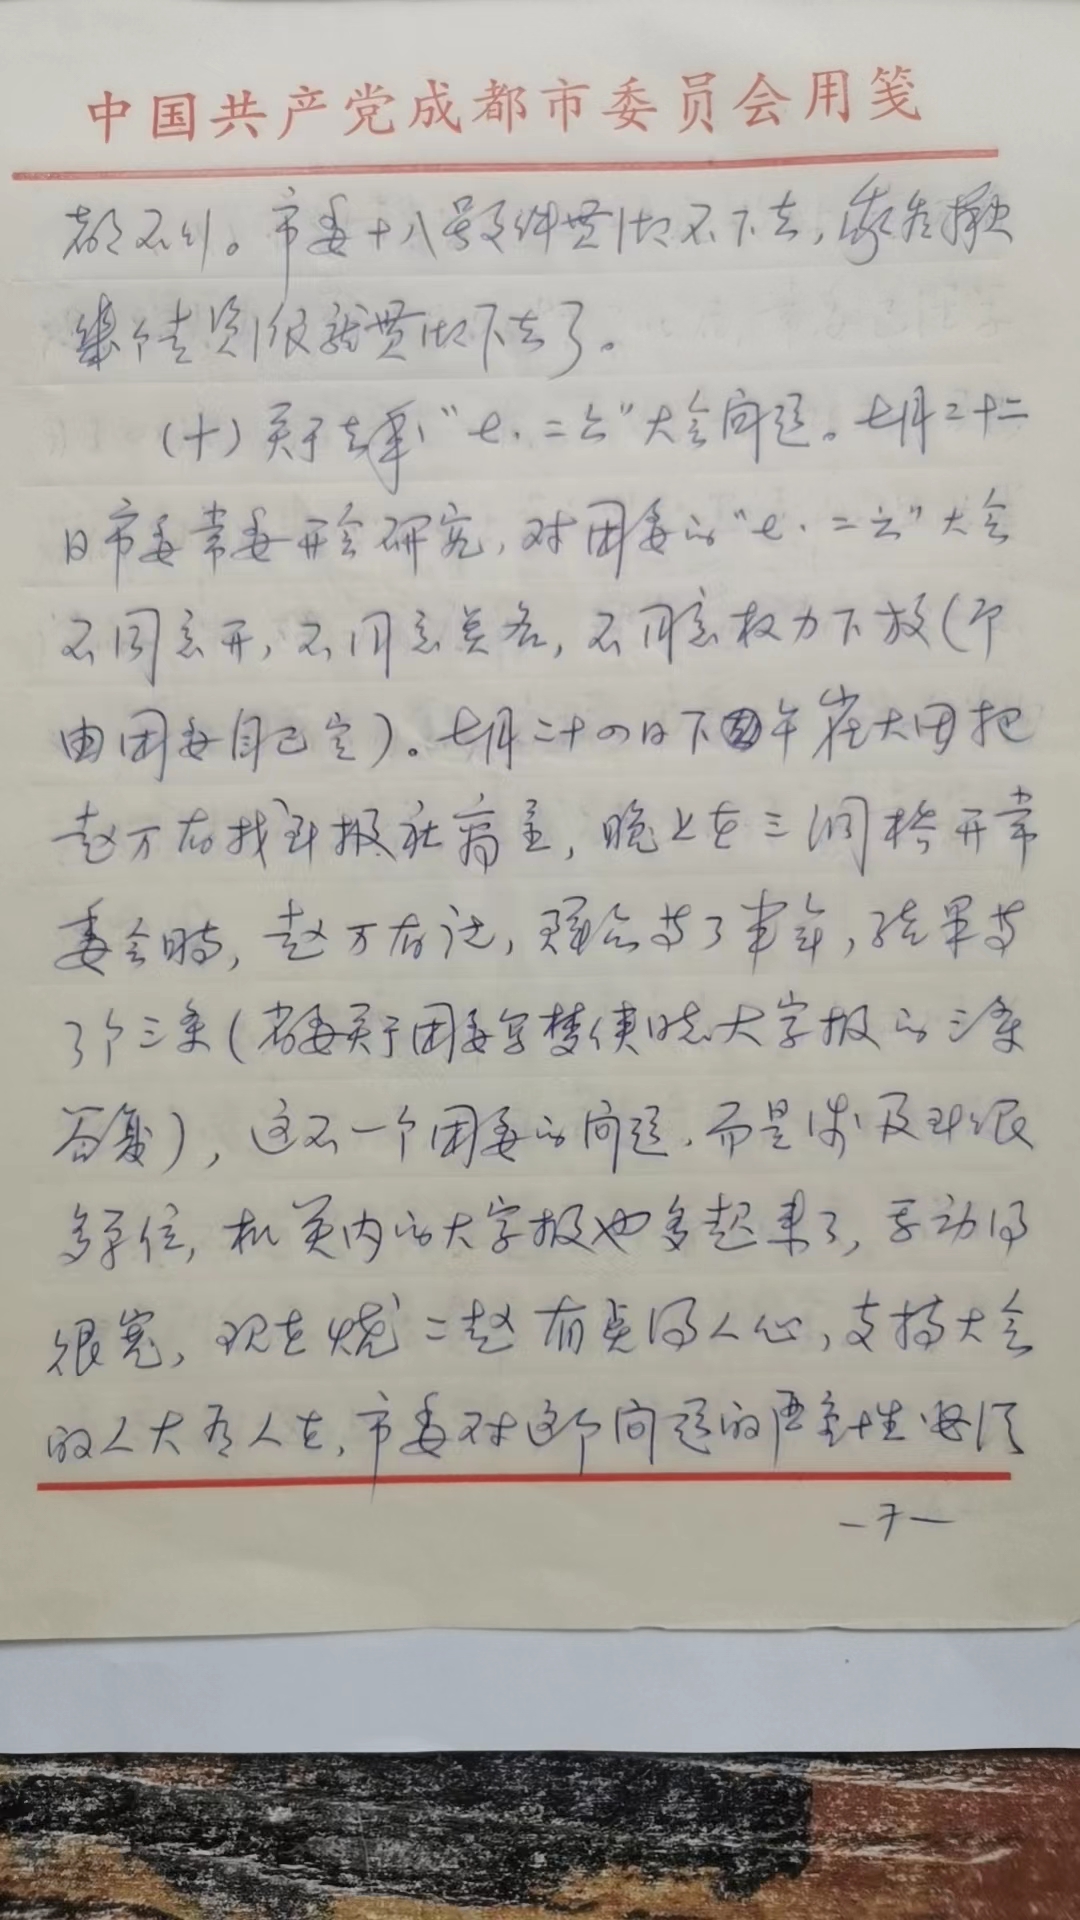 中国共产党成都市委员会用笺
都不行。市委十八号文件贯彻不下去,
几个走资派就贯彻下去了。
(十)关于去年“七·二六”大会问题。七月二十二
日市委常委开会研究,对团委的“七·二六”大会
不同意开,不同意其名,不同意权力下放(即
由团委自己定)。七月二十四日下午崔大田把
赵万有找到报社商量,晚上在三洞桥开常
委会时,赵万有说,联合等了半年,结果等
了个三条(省委关于团委罗梦侠 大字报的三条
答复),这不一个团委的问题,而是涉及到很
多单位,机关内的大字报也多起来了,震动得
很宽,现在烧二赵有点得人心,支持大会
的人大有人在,市委对这个问题的严重性要
—7—